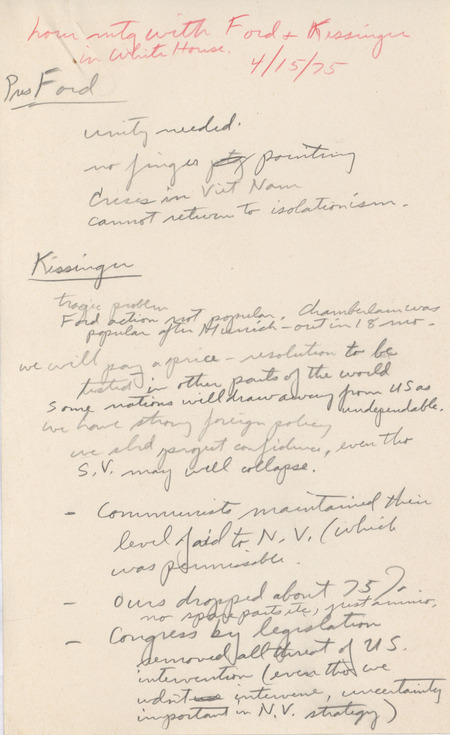 hour mtg with Ford & Kissinger
in White House.
4/15/75
Pres Ford
unity needed.
no finger pointing
Crisis in Viet Nam
cannot return to isolationism.
Kissinger
tragic problem
Ford action not popular. Chamberlain was
popular after Munich - out in 18 mo.
we will pay a price - resolution to be
tested in other parts of the world
Some nations will draw away from US as
undependable.
We have strong foreign policy
we shd project confidence, even tho
S.V. may well collapse.
- Communists maintained their
level of aid to N.V. (which
was permissable.
- Ours dropped about 75%
no spare parts etc, just ammo.
- Congress by legislation
removed all threat of U.S.
intervention (even tho we
wdn't intervene, uncertainty
important in N.V. strategy)